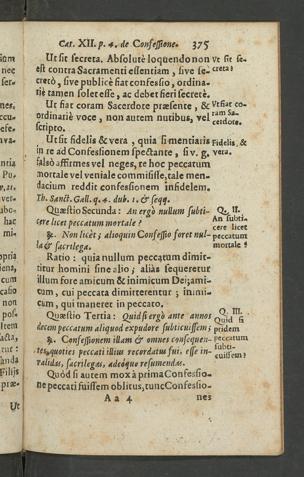 Cat. XII. p. 4. de Confessione. 375
Ut sit secreta. Absolutè loquendo non
est contra Sacramenti essentiam, sive se-
cretò, sive publicè fiat confessio, ordina-
riè tamen solet esse, ac debet fieri secretè.
Ut sit se-
creta?
Ut fiat coram Sacerdote præsente, &
ordinariè voce, non autem nutibus, vel
scripto.
Ut fiat co-
ram Sa-
cerdote.
Ut sit fidelis & vera, quia si mentiaris
in re ad Confessionem spectante, si v. g.
falsò affirmes vel neges, te hoc peccatum
mortale vel veniale commisisse, tale men-
dacium reddit confessionem infidelem.
Th. Sanct. Gall. q. 4. dub. 1. & seqq.
Fidelis, &
vera.
Quæstio Secunda: An ergò nullum subti-
cere licet peccatum mortale?
℞. Non licet; alioquin Confessio foret nul-
la & sacrilega.
Q. II.
An subti-
cere licet
peccatum
mortale?
Ratio: quia nullum peccatum dimit-
titur homini sine alio; aliàs sequeretur
illum fore amicum & inimicum Dei; ami-
cum, cui peccata dimitterentur; inimi-
cum, qui maneret in peccato.
Quæstio Tertia: Quid si ergò ante annos
decem peccatum aliquod expudore subticuissem;
℞. Confessionem illam & omnes consequen-
tes, quoties peccati illius recordatus fui, esse in-
validas, sacrilegas, adeoque resumendas.
Q. III.
Quid si
pridem
peccatum
subti-
cuissem?
Quòd si autem mox à prima Confessio-
ne peccati fuissem oblitus, tunc Confessio-
A a 4 nes
Ut